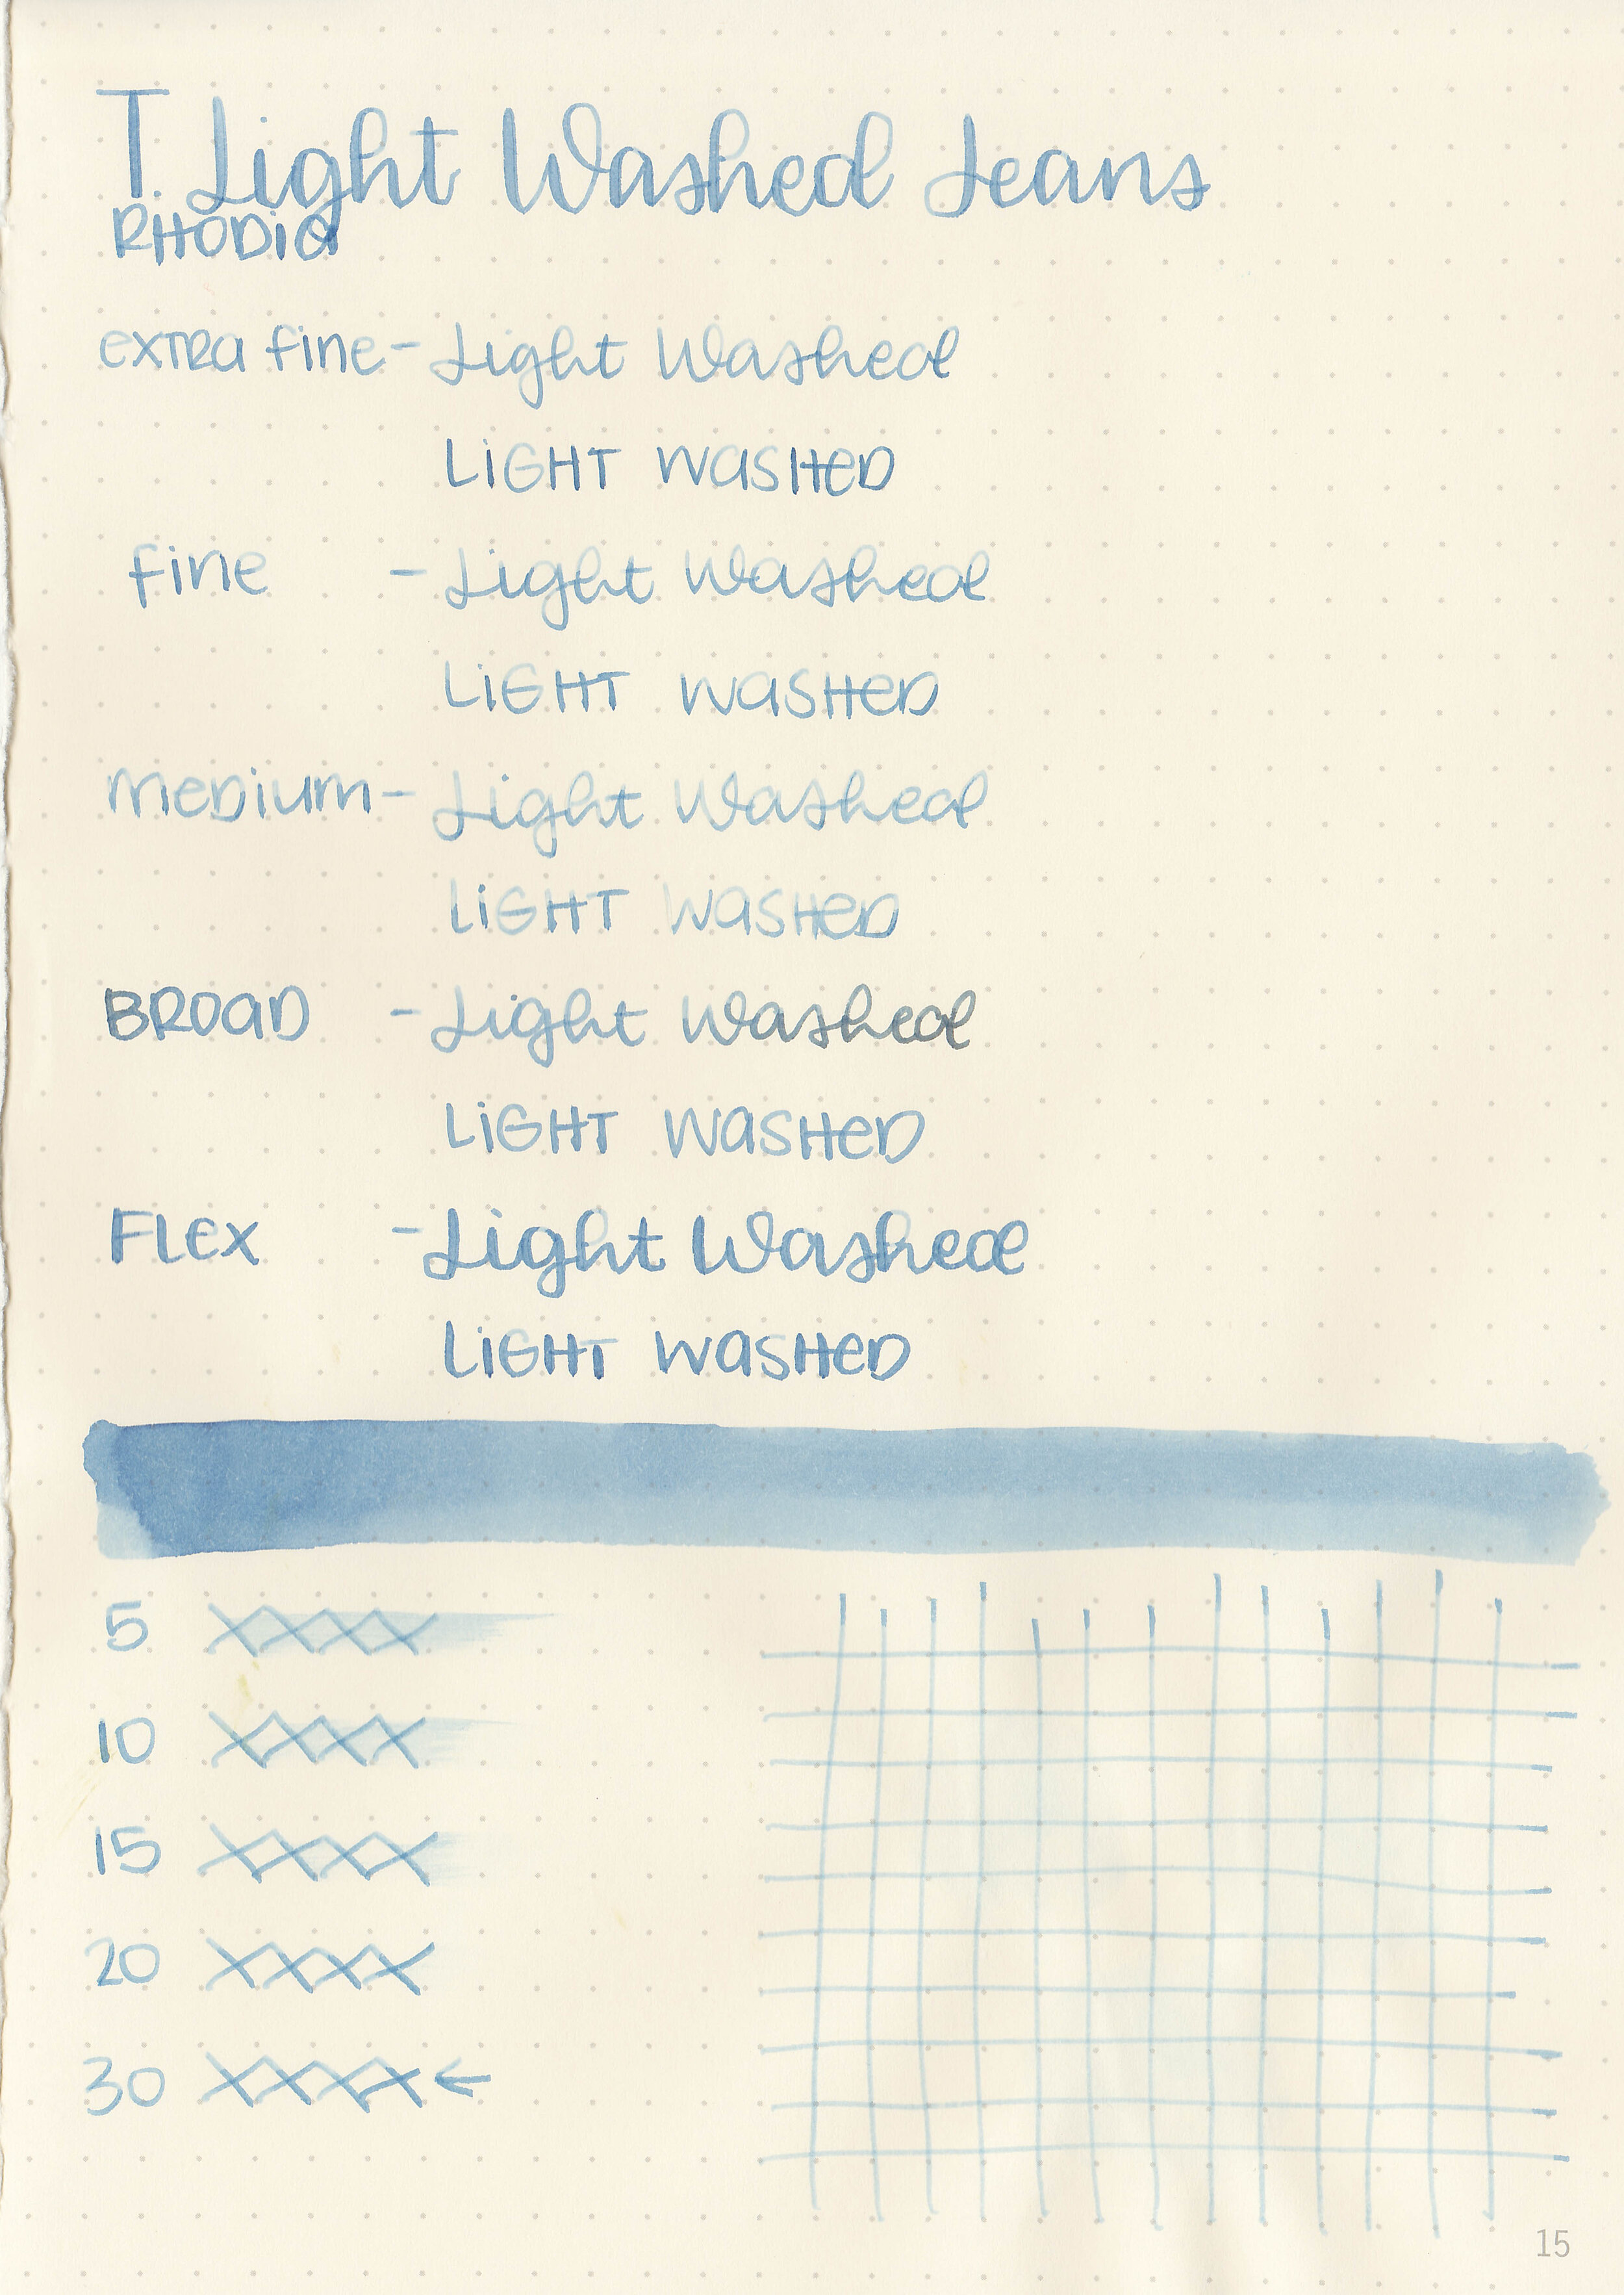 T. Light Washed Jeans
RHODIA
extra fine - Light Washed
LIGHT WASHED
fine - Light Washed
LIGHT WASHED
medium - Light Washed
LIGHT WASHED
BROAD - Light Washed
LIGHT WASHED
FLEX - Light Washed
LIGHT WASHED
5 XXXX
10 XXXX
15 XXXX
20 XXXX
30 XXXX ←
15